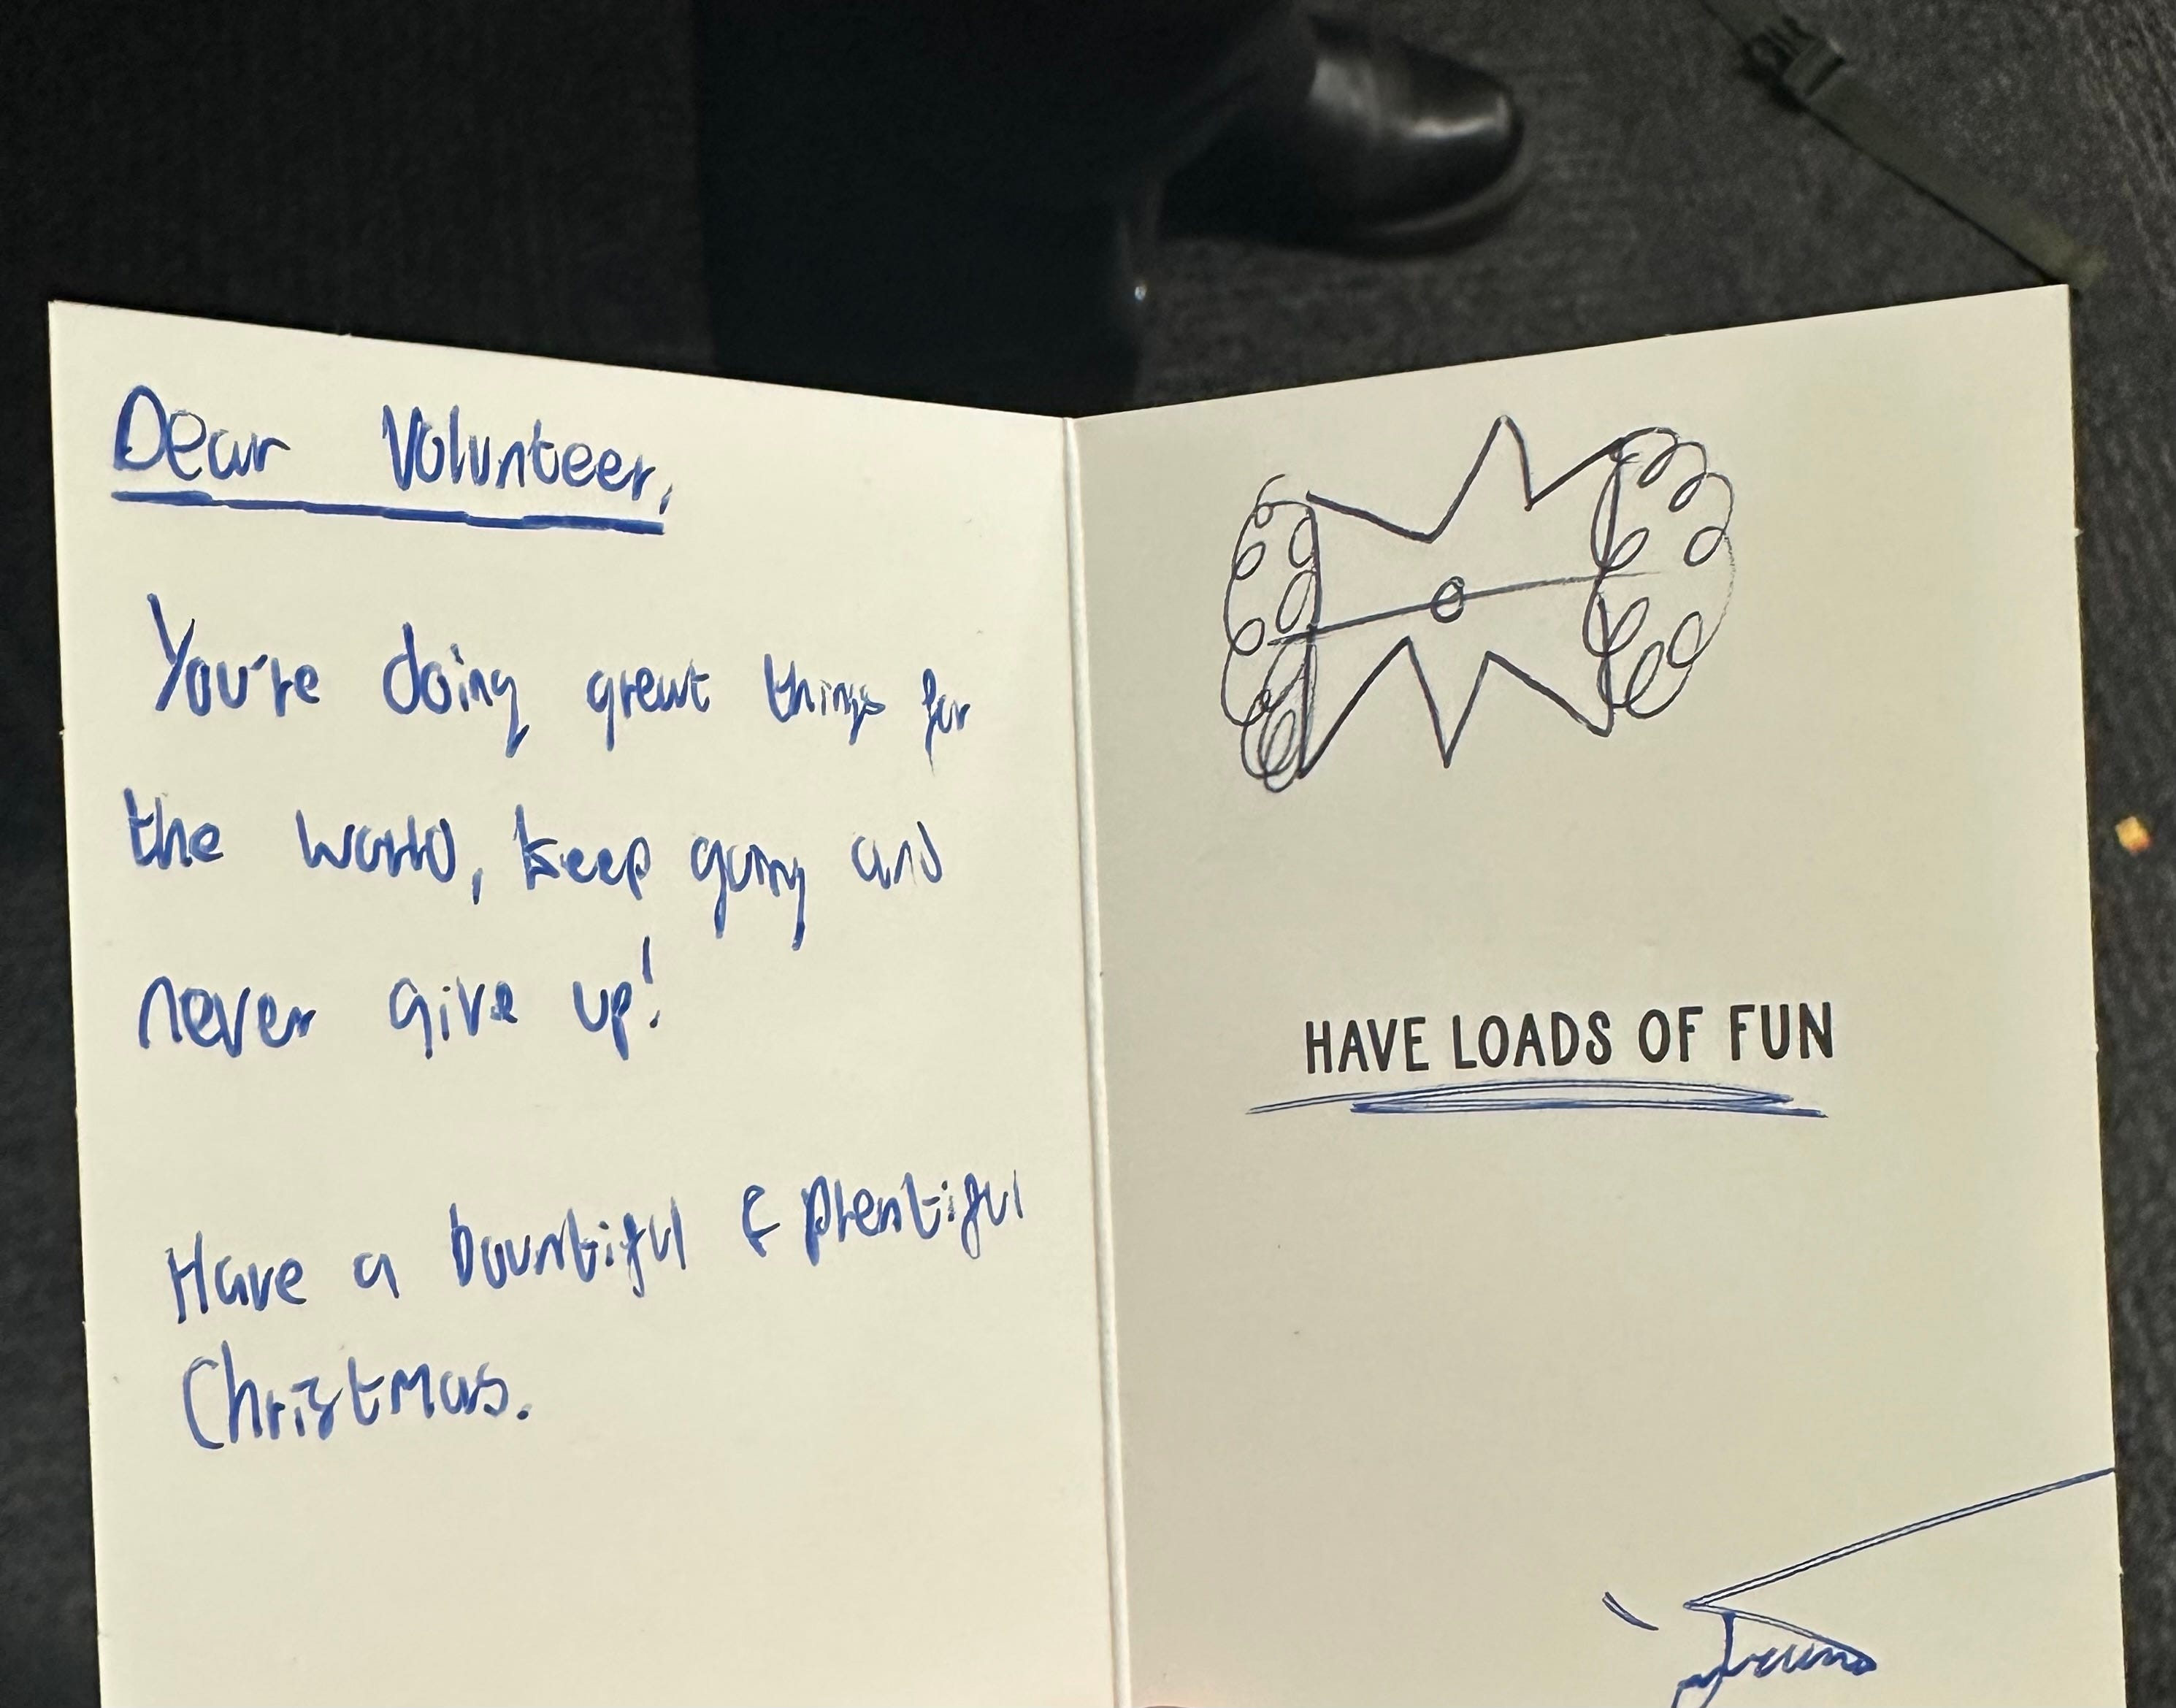 Dear Volunteer,
You're doing great things for
the world, keep going and
never give up!
Have a bountiful & plentiful
Christmas.
HAVE LOADS OF FUN